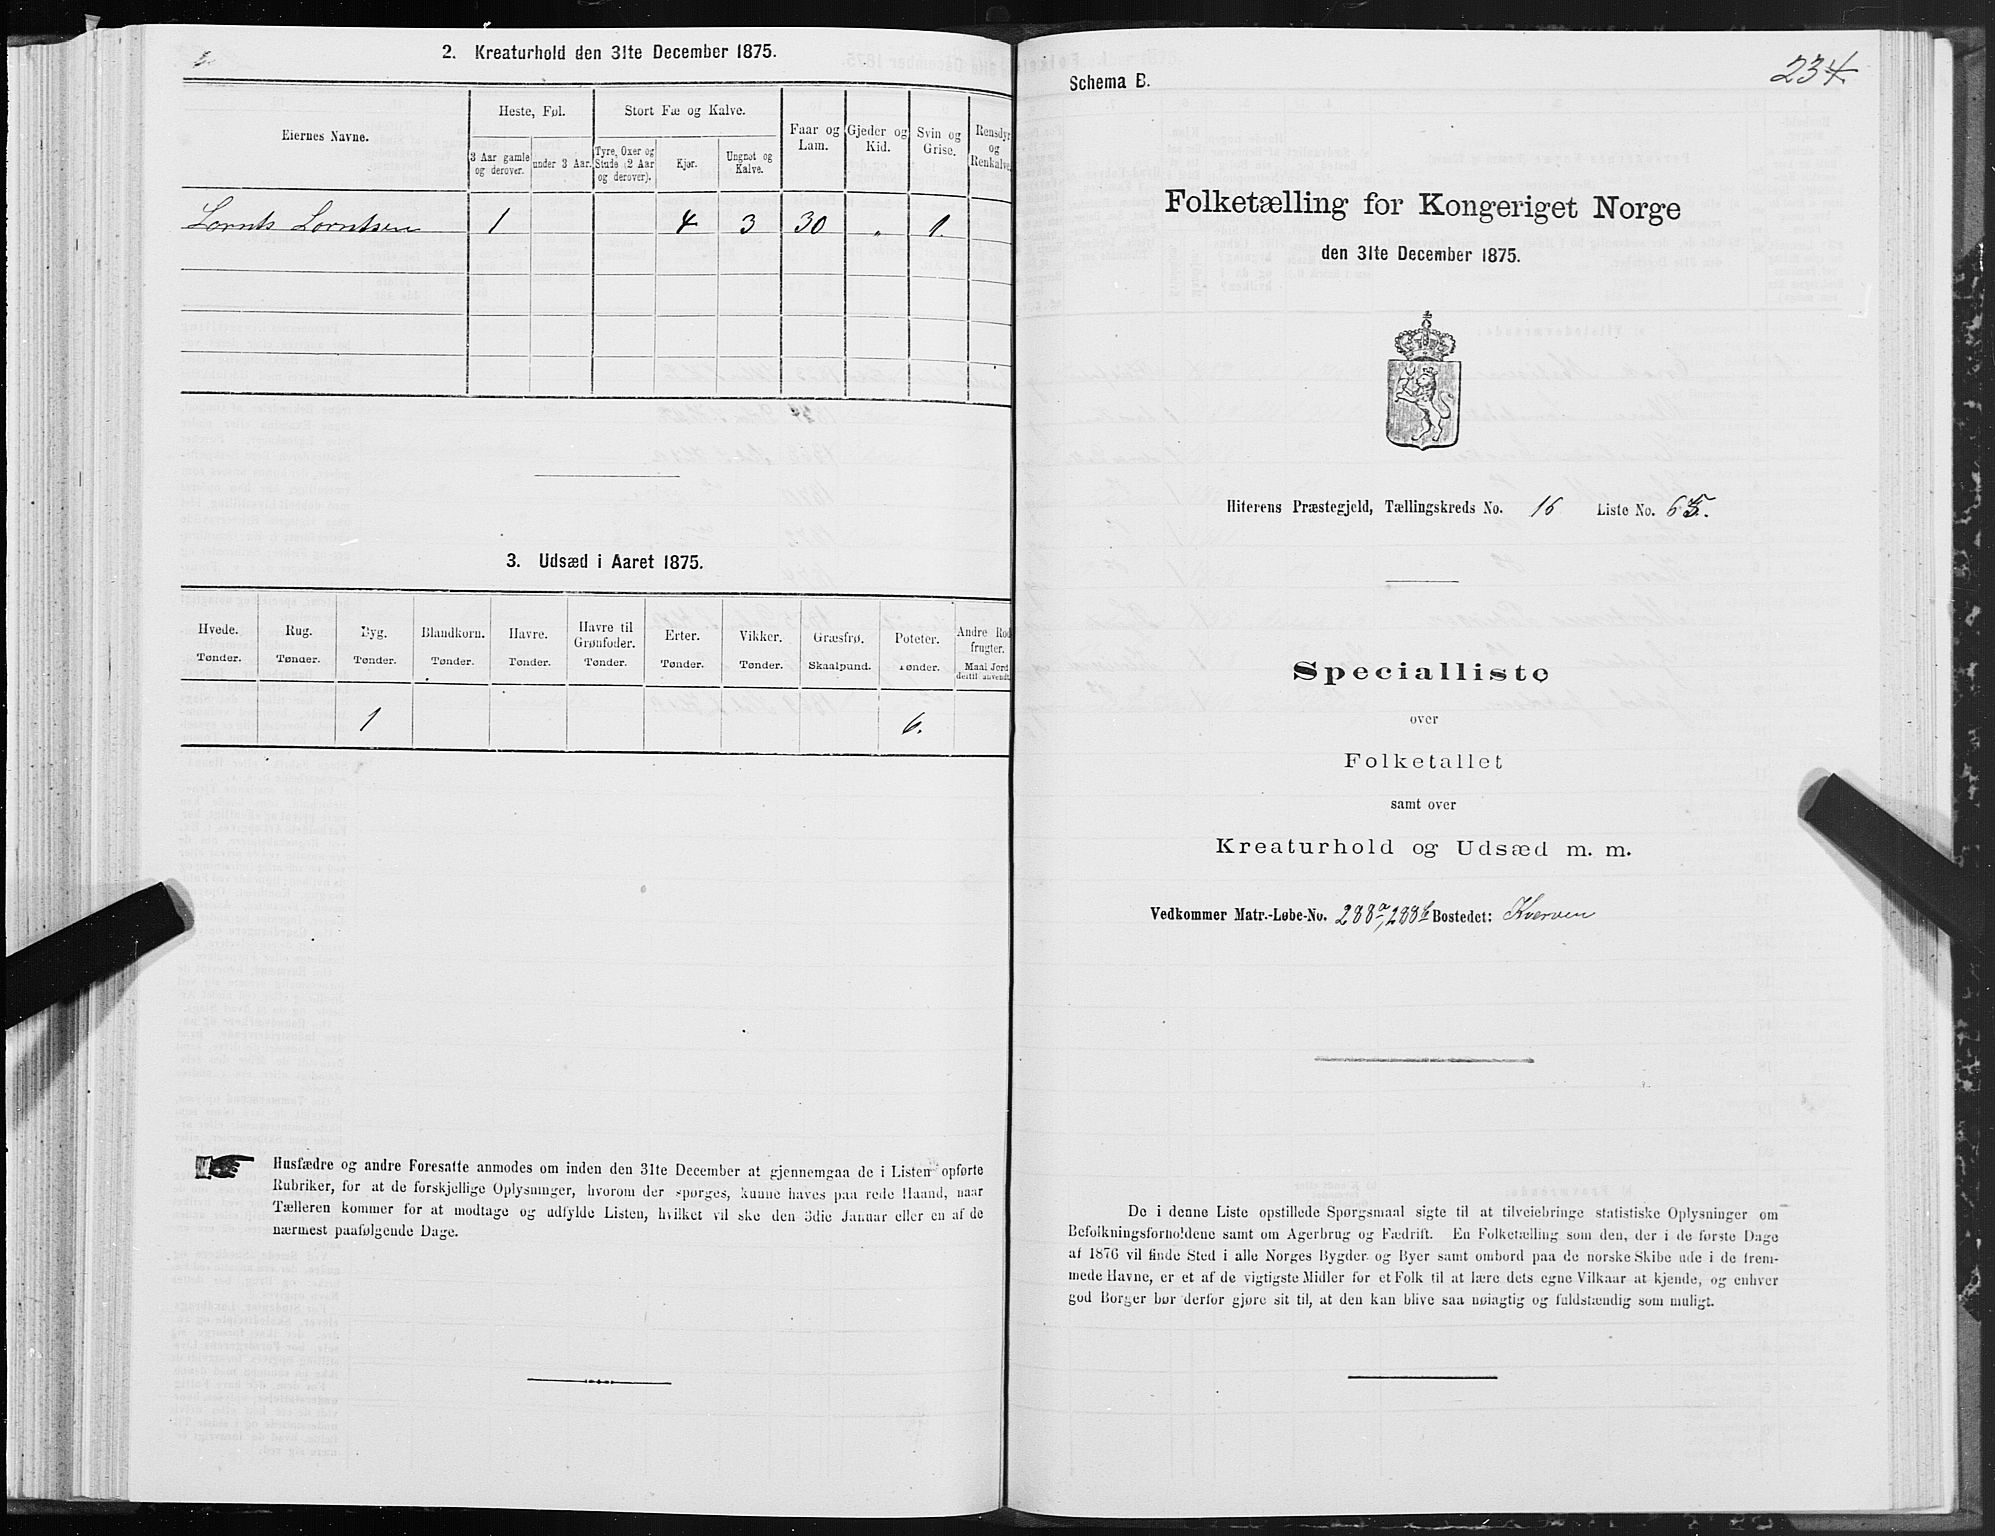 2. Kreaturhold den 31te December 1875.
Eiernes Navne.
Heste, Føl.
Stort Fæ og Kalve.
Faar og Lam.
Gjeder og Kid.
Svin og Grise.
Rensdyr og Renkalve.
3 Aar gamle og derover.
under 3 Aar.
Tyre, Oxer og Stude (2 Aar og derover).
Kjør.
Ungnøt og Kalve.
Lornts Lorntsen 1 4 3 30 „ 1.
3. Udsæd i Aaret 1875.
Hvede. Rug. Byg. Blandkorn. Havre. Havre til Grønfoder. Erter. Vikker. Græsfrø. Poteter. Andre Rodfrugter.
Tønder. Tønder. Tønder. Tønder. Tønder. Tønder. Tønder. Tønder. Skaalpund. Tønder. Maal Jord dertil anvendt.
1 6.
Husfædre og andre Foresatte anmodes om inden den 31te December at gjennemgaa de i Listen opførte
Rubriker, for at de forskjellige Oplysninger, hvorom der spørges, kunne haves paa rede Haand, naar
Tælleren kommer for at modtage og udfylde Listen, hvilket vil ske den 3die Januar eller en af de
nærmest paafølgende Dage.
234
Schema B.
Folketælling for Kongeriget Norge
den 31te December 1875.
Hiterens Præstegjeld, Tællingskreds No. 16 Liste No. 65.
Specialliste
over
Folketallet
samt over
Kreaturhold og Udsæd m. m.
Vedkommer Matr.-Løbe-No. 288a, 288b Bostedet: Kverven
De i denne Liste opstillede Spørgsmaal sigte til at tilveiebringe statistiske Oplysninger om
Befolkningsforholdene samt om Agerbrug og Fædrift. En Folketælling som den, der i de første Dage
af 1876 vil finde Sted i alle Norges Bygder og Byer samt ombord paa de norske Skibe ude i de frem-
mede Havne, er et af de vigtigste Midler for et Folk til at lære dets egne Vilkaar at kjende, og enhver
god Borger bør derfor gjøre sit til, at den kan blive saa nøiagtig og fuldstændig som muligt.